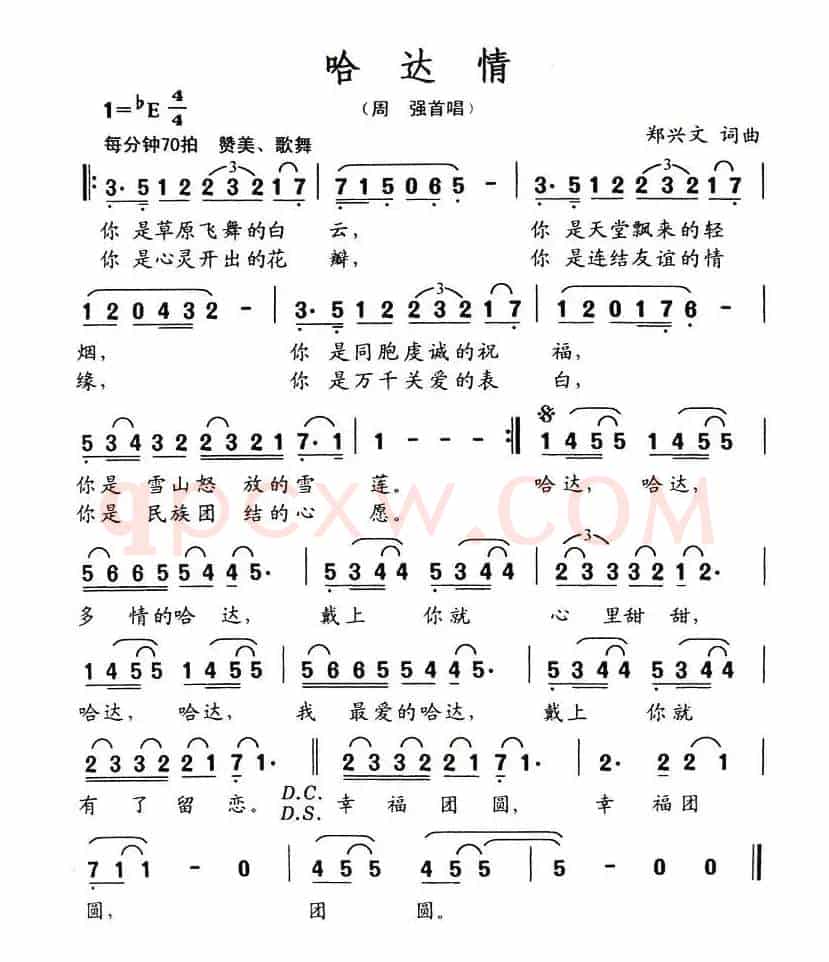 哈达情
1=♭E 4/4
（周 强首唱）
每分钟70拍 赞美、歌舞
郑兴文 词曲
3
3
‖: 3· 5 1 2 2 3 2 1 7 | 7 1 5 0 6 5 - | 3· 5 1 2 2 3 2 1 7 |
你 是草原飞舞的白 云， 你 是天堂飘来的轻
你 是心灵开出的花 瓣， 你 是连结友谊的情
3
1 2 0 4 3 2 - | 3· 5 1 2 2 3 2 1 7 | 1 2 0 1 7 6 - |
烟， 你 是同胞虔诚的祝 福，
缘， 你 是万千关爱的表 白，
5 3 4 3 2 2 3 2 1 7· 1 | 1 - - - :‖ 1 4 5 5 1 4 5 5 |
你是 雪山怒 放的雪 莲。 哈达， 哈达，
你是 民族团 结的心 愿。
qpcxw.COM
3
5 6 6 5 5 4 4 5· | 5 3 4 4 5 3 4 4 | 2 3 3 3 2 1 2· |
多 情的哈 达， 戴上 你就 心 里甜 甜，
1 4 5 5 1 4 5 5 | 5 6 6 5 5 4 4 5· | 5 3 4 4 5 3 4 4 |
哈达， 哈达， 我 最爱的哈达， 戴上 你就
2 3 3 2 2 1 7 1· ‖ 2 3 3 2 2 1 7 1· | 2· 2 2 1 |
有 了 留 恋。 D.C. 幸 福 团 圆， 幸 福团
D.S.
7 1 1 - 0 | 4 5 5 4 5 5 | 5 - 0 0 ‖
圆， 团 圆。